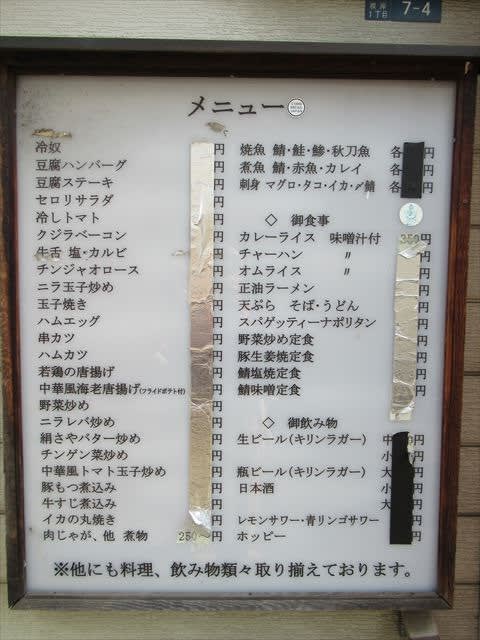 根岸
1丁目
7-4
メニュー
冷奴 円
豆腐ハンバーグ 円
豆腐ステーキ 円
セロリサラダ 円
冷しトマト 円
クジラベーコン 円
牛舌 塩・カルビ 円
チンジャオロース 円
ニラ玉子炒め 円
玉子焼き 円
ハムエッグ 円
串カツ 円
ハムカツ 円
若鶏の唐揚げ 円
中華風海老唐揚げ(フライドポテト付) 円
野菜炒め 円
ニラレバ炒め 円
絹さやバター炒め 円
チンゲン菜炒め 円
中華風トマト玉子炒め 円
豚もつ煮込み 円
牛すじ煮込み 円
イカの丸焼き 円
肉じゃが、他 煮物 250〜円
焼魚 鯖・鮭・鯵・秋刀魚 各 円
煮魚 鯖・赤魚・カレイ 各 円
刺身 マグロ・タコ・イカ・〆鯖 各 円
◇ 御食事
カレーライス 味噌汁付 350円
チャーハン 〃 円
オムライス 〃 円
正油ラーメン 円
天ぷら そば・うどん 円
スパゲッティーナポリタン 円
野菜炒め定食 円
豚生姜焼定食 円
鯖塩焼定食 円
鯖味噌定食 円
◇ 御飲み物
生ビール(キリンラガー) 中 0円
小 円
瓶ビール(キリンラガー) 大 円
日本酒 小 円
大 円
レモンサワー・青リンゴサワー 円
ホッピー 円
※他にも料理、飲み物類々取り揃えております。